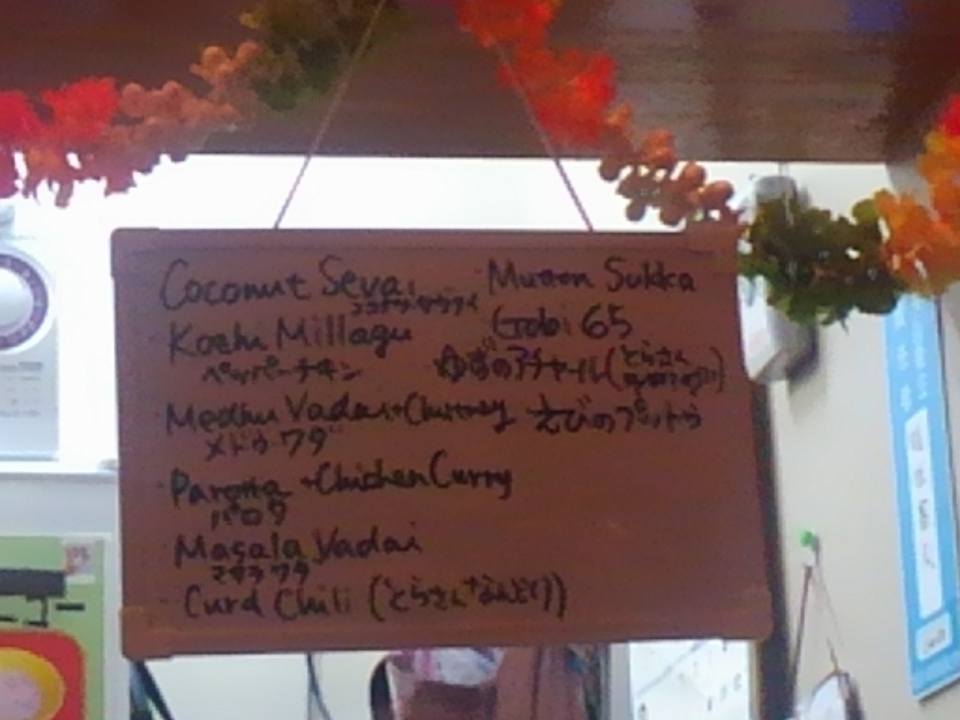 Coconut Sevai
ココナッツセヴァイ
Kozhi Millagu
ペッパーチキン
Medhu Vadai+Chutney
メドゥワダ
Parotta +Chicken Curry
パロタ
Masala Vadai
マサラワダ
Curd Chili (とらさん
Mutton Sukka
Gobi 65
ゆずのアチャール(とらさん
えびの